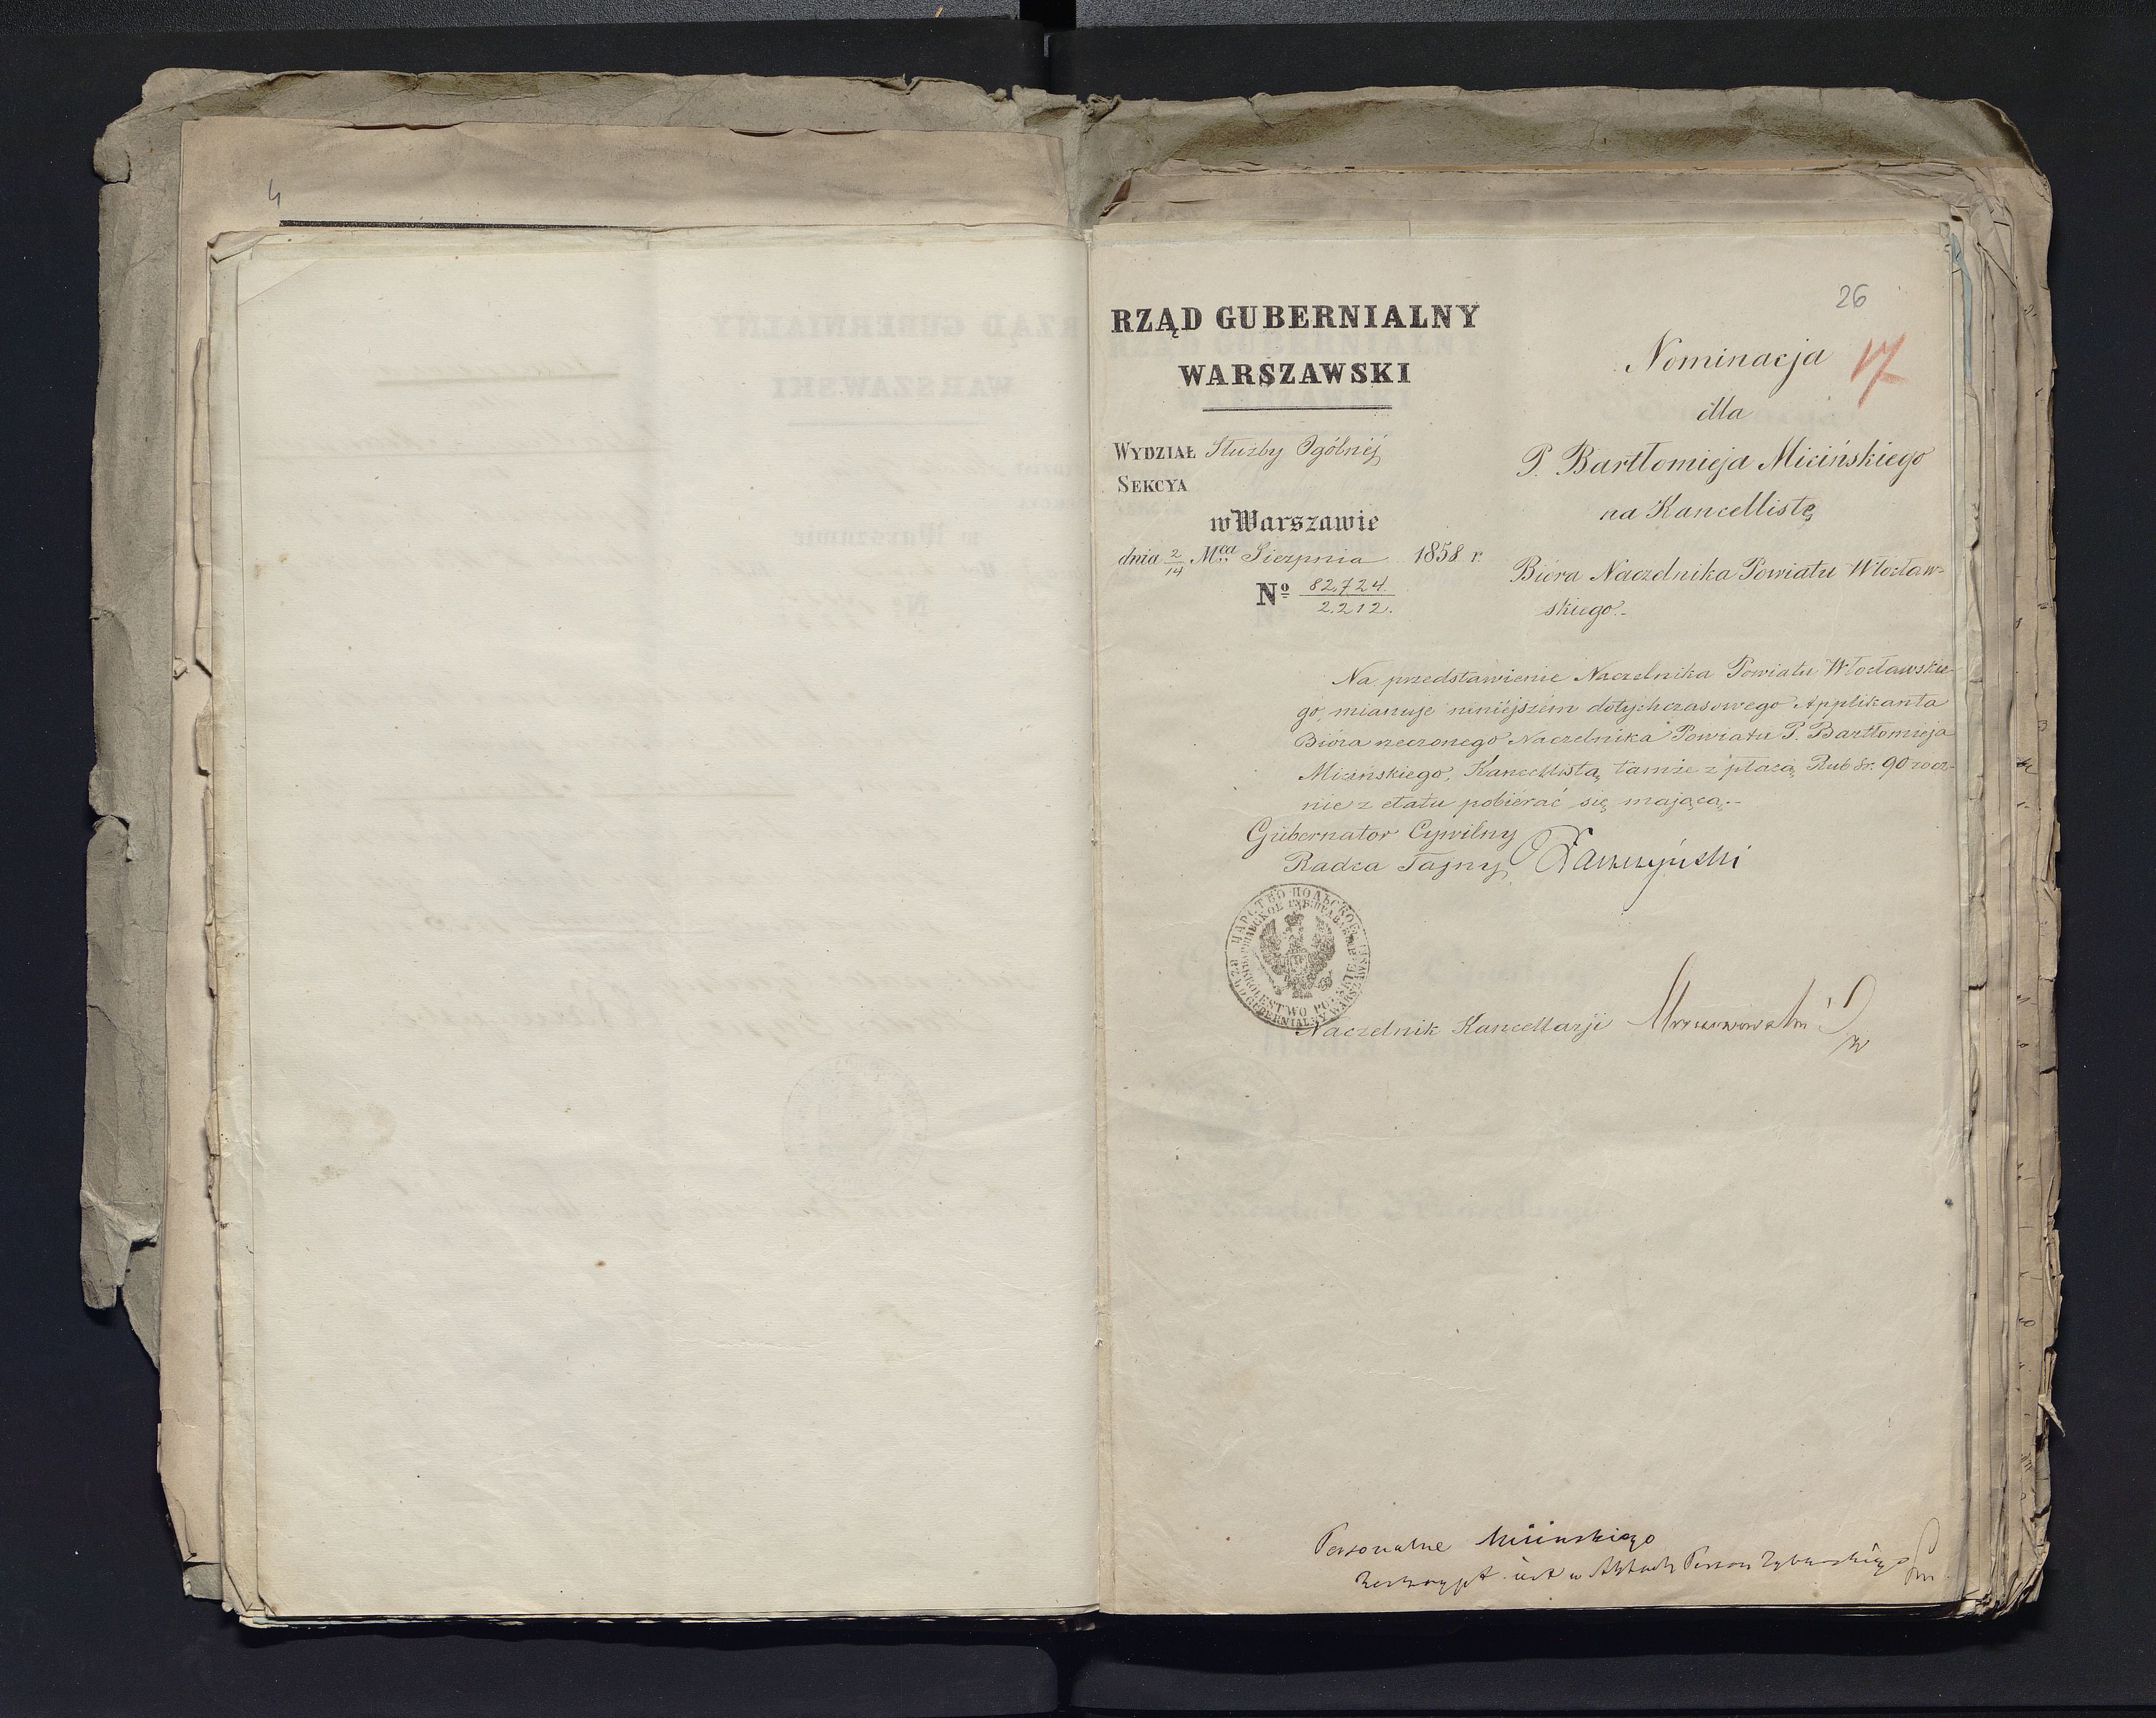 4
26
17
RZĄD GUBERNIALNY
WARSZAWSKI
WYDZIAŁ Służby Ogólnéj
SEKCYA
w Warszawie
dnia 2/14 Mca Sierpnia 1858 r.
No 82,724.
2,212.
Nominacja
dla
P. Bartłomieja Micińskiego
na Kancellistę
Bióra Naczelnika Powiatu Włocław-
skiego.-
Na przedstawienie Naczelnika Powiatu Włocławskie-
go, mianuje niniejszém dotychczasowego Applikanta
Bióra rzeczonego Naczelnika Powiatu P. Bartłomieja
Micińskiego, Kancellistą tamże z płacą Rub Sr. 90 rocz-
nie z etatu pobierać się mającą.-
Gubernator Cywilny
Radca Tajny Łaszczyński
ЦАРСТВО ПОЛЬСКОЕ
KRÓLESTWO POLSKIE
RZĄD GUBERNIALNY WARSZAWSKI
Naczelnik Kancellarji
Personalne Micinskiego
Reskrypt jest w Aktach Person